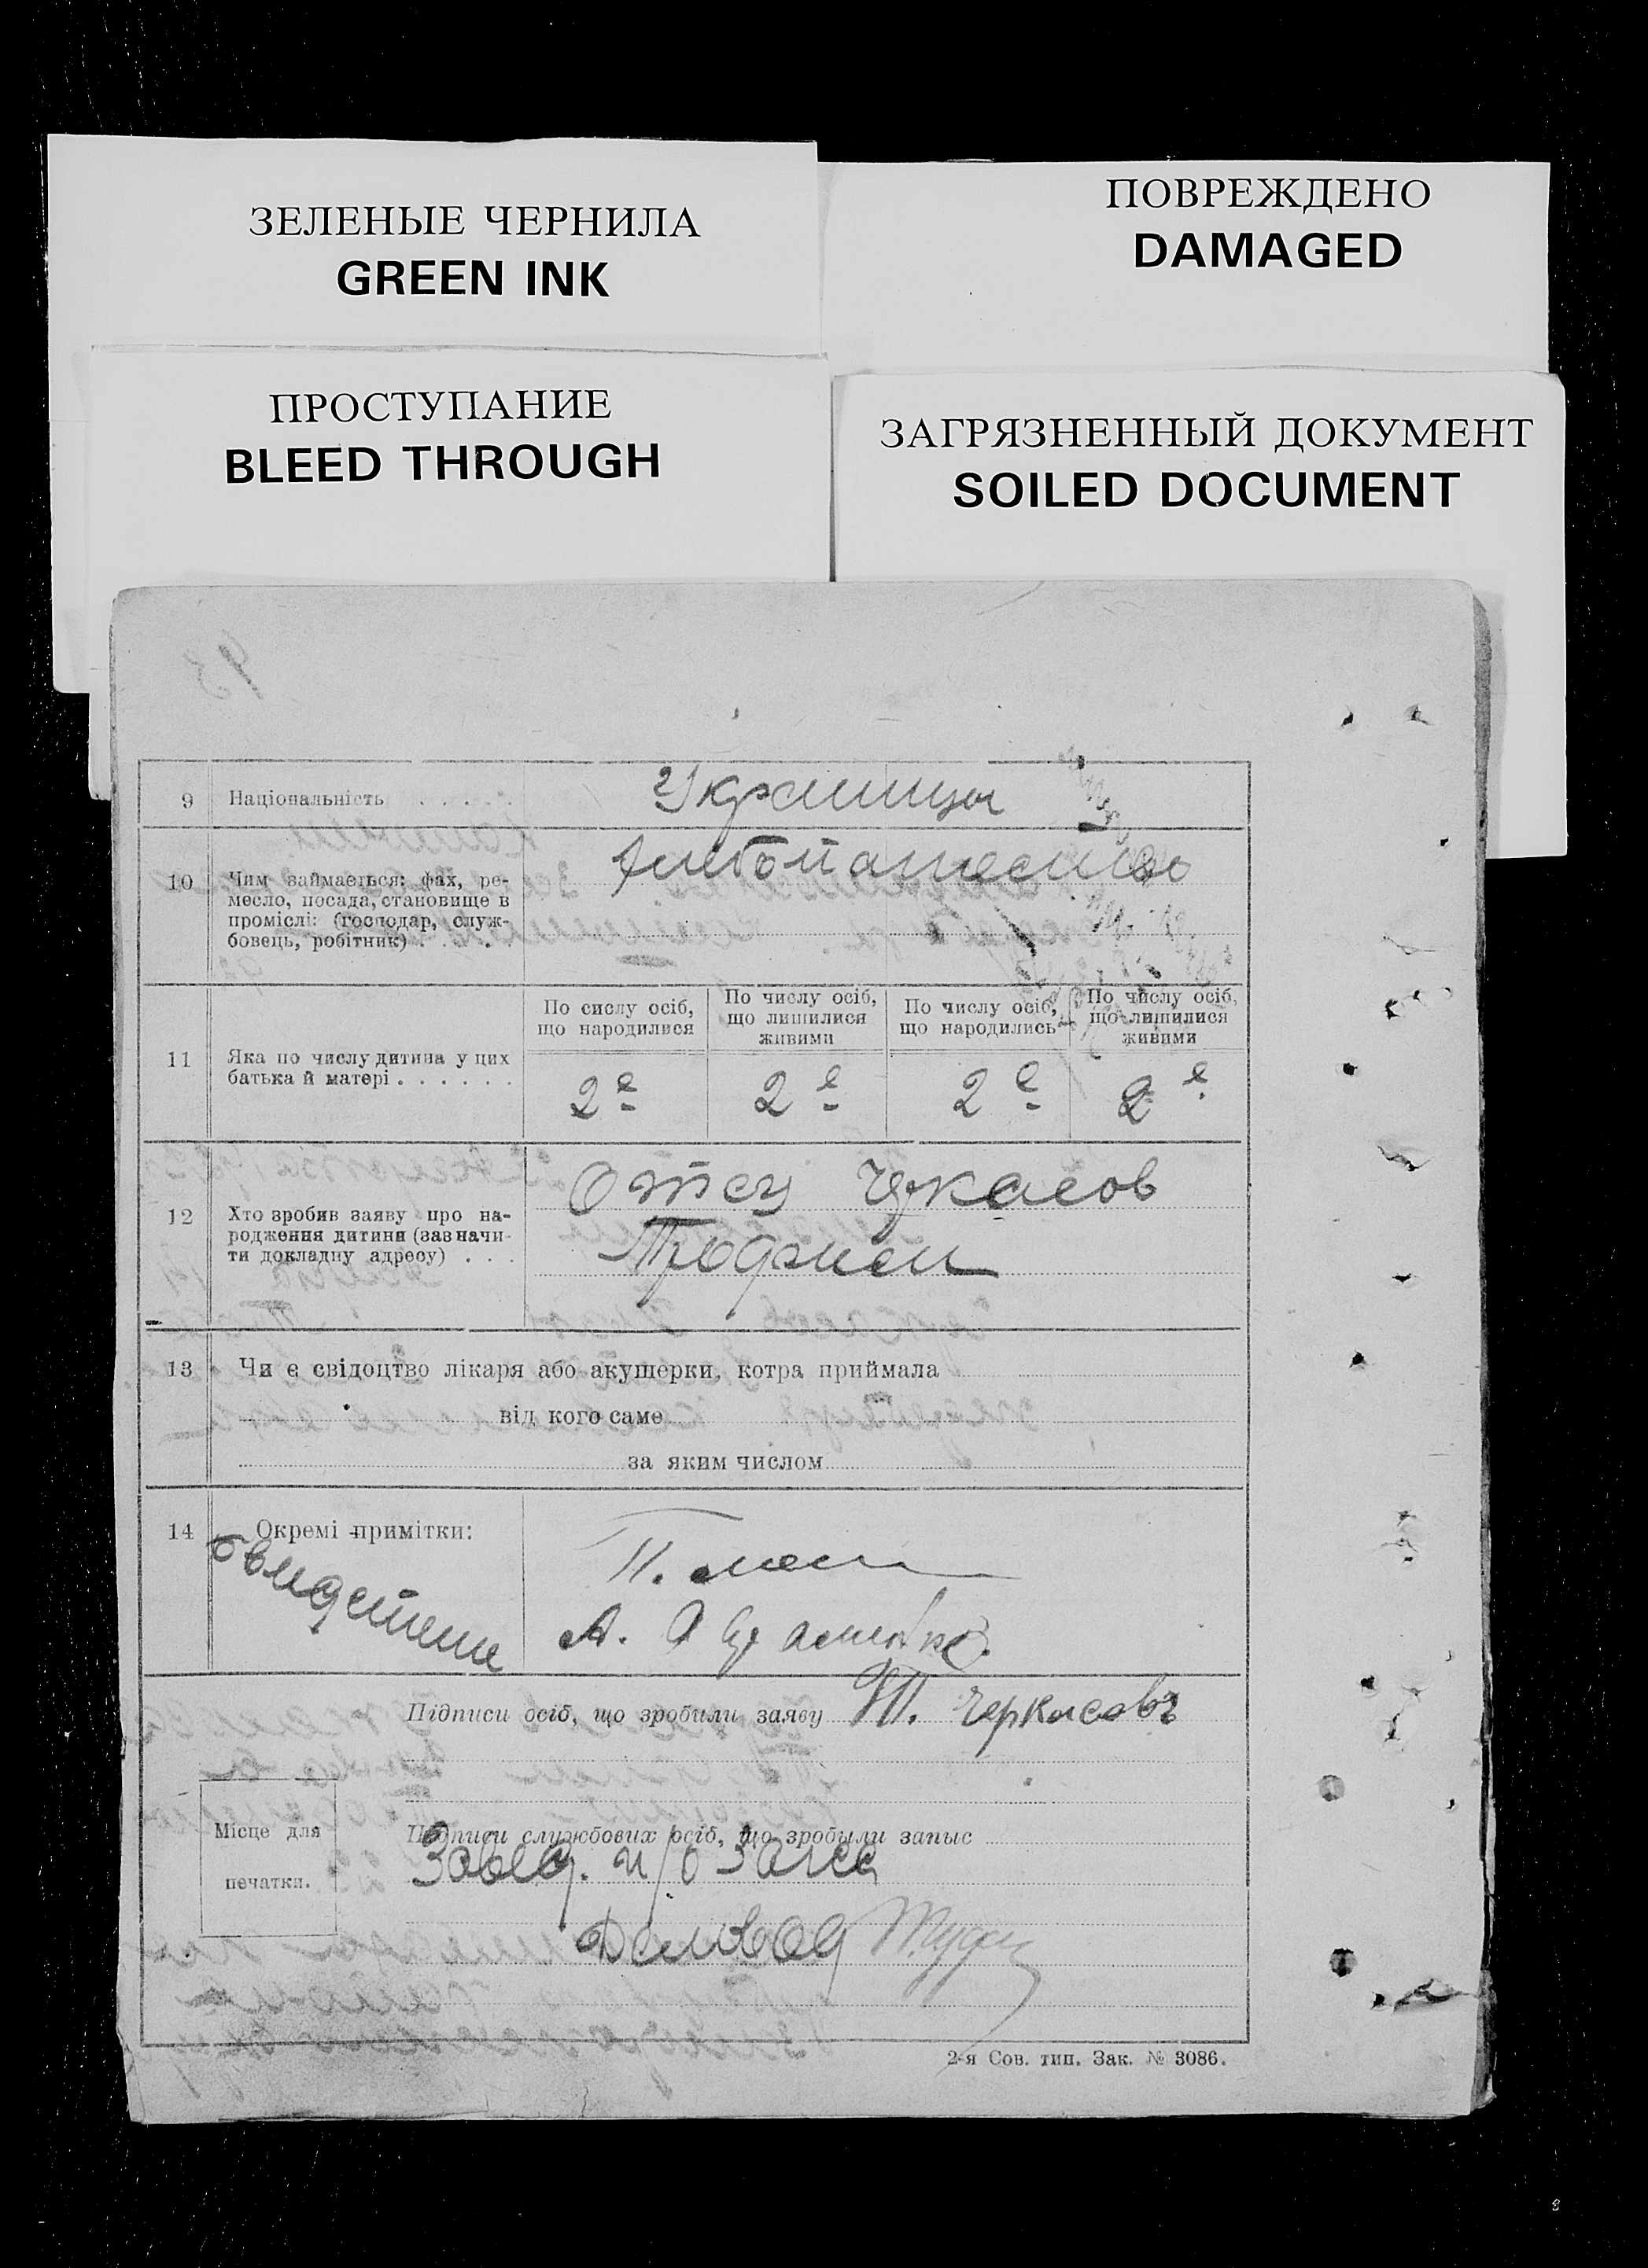 ЗЕЛЕНЫЕ ЧЕРНИЛА
GREEN INK
ПОВРЕЖДЕНО
DAMAGED
ПРОСТУПАНИЕ
BLEED THROUGH
ЗАГРЯЗНЕННЫЙ ДОКУМЕНТ
SOILED DOCUMENT
93
9 Національність . . . . . Украинцы
10 Чим займається: фах, ре-
месло, посада, становище в
проміслі: (господар, служ-
бовець, робітник) . . . .
хлебопашество
11 Яка по числу дитина у цих
батька й матері . . . . . .
По сислу осіб,
що народилися
По числу осіб,
що лишилися
живими
По числу осіб,
що народились
По числу осіб,
що лишилися
живими
2е 2е 2е 2е
12 Хто зробив заяву про на-
родження дитини (зазначи-
ти докладну адресу) . . .
Отец Чркасов
Трофим
13 Чи є свідоцтво лікаря або акушерки, котра приймала
від кого саме
за яким числом
14 Окремі примітки:
П.
А.
Підписи осіб, що зробили заяву Т. Черкасовъ
Місце для
печатки.
Підписи службових осіб, що зробыли запыс
Завед. п/о Загса
2-я Сов. тип. Зак. № 3086.
8